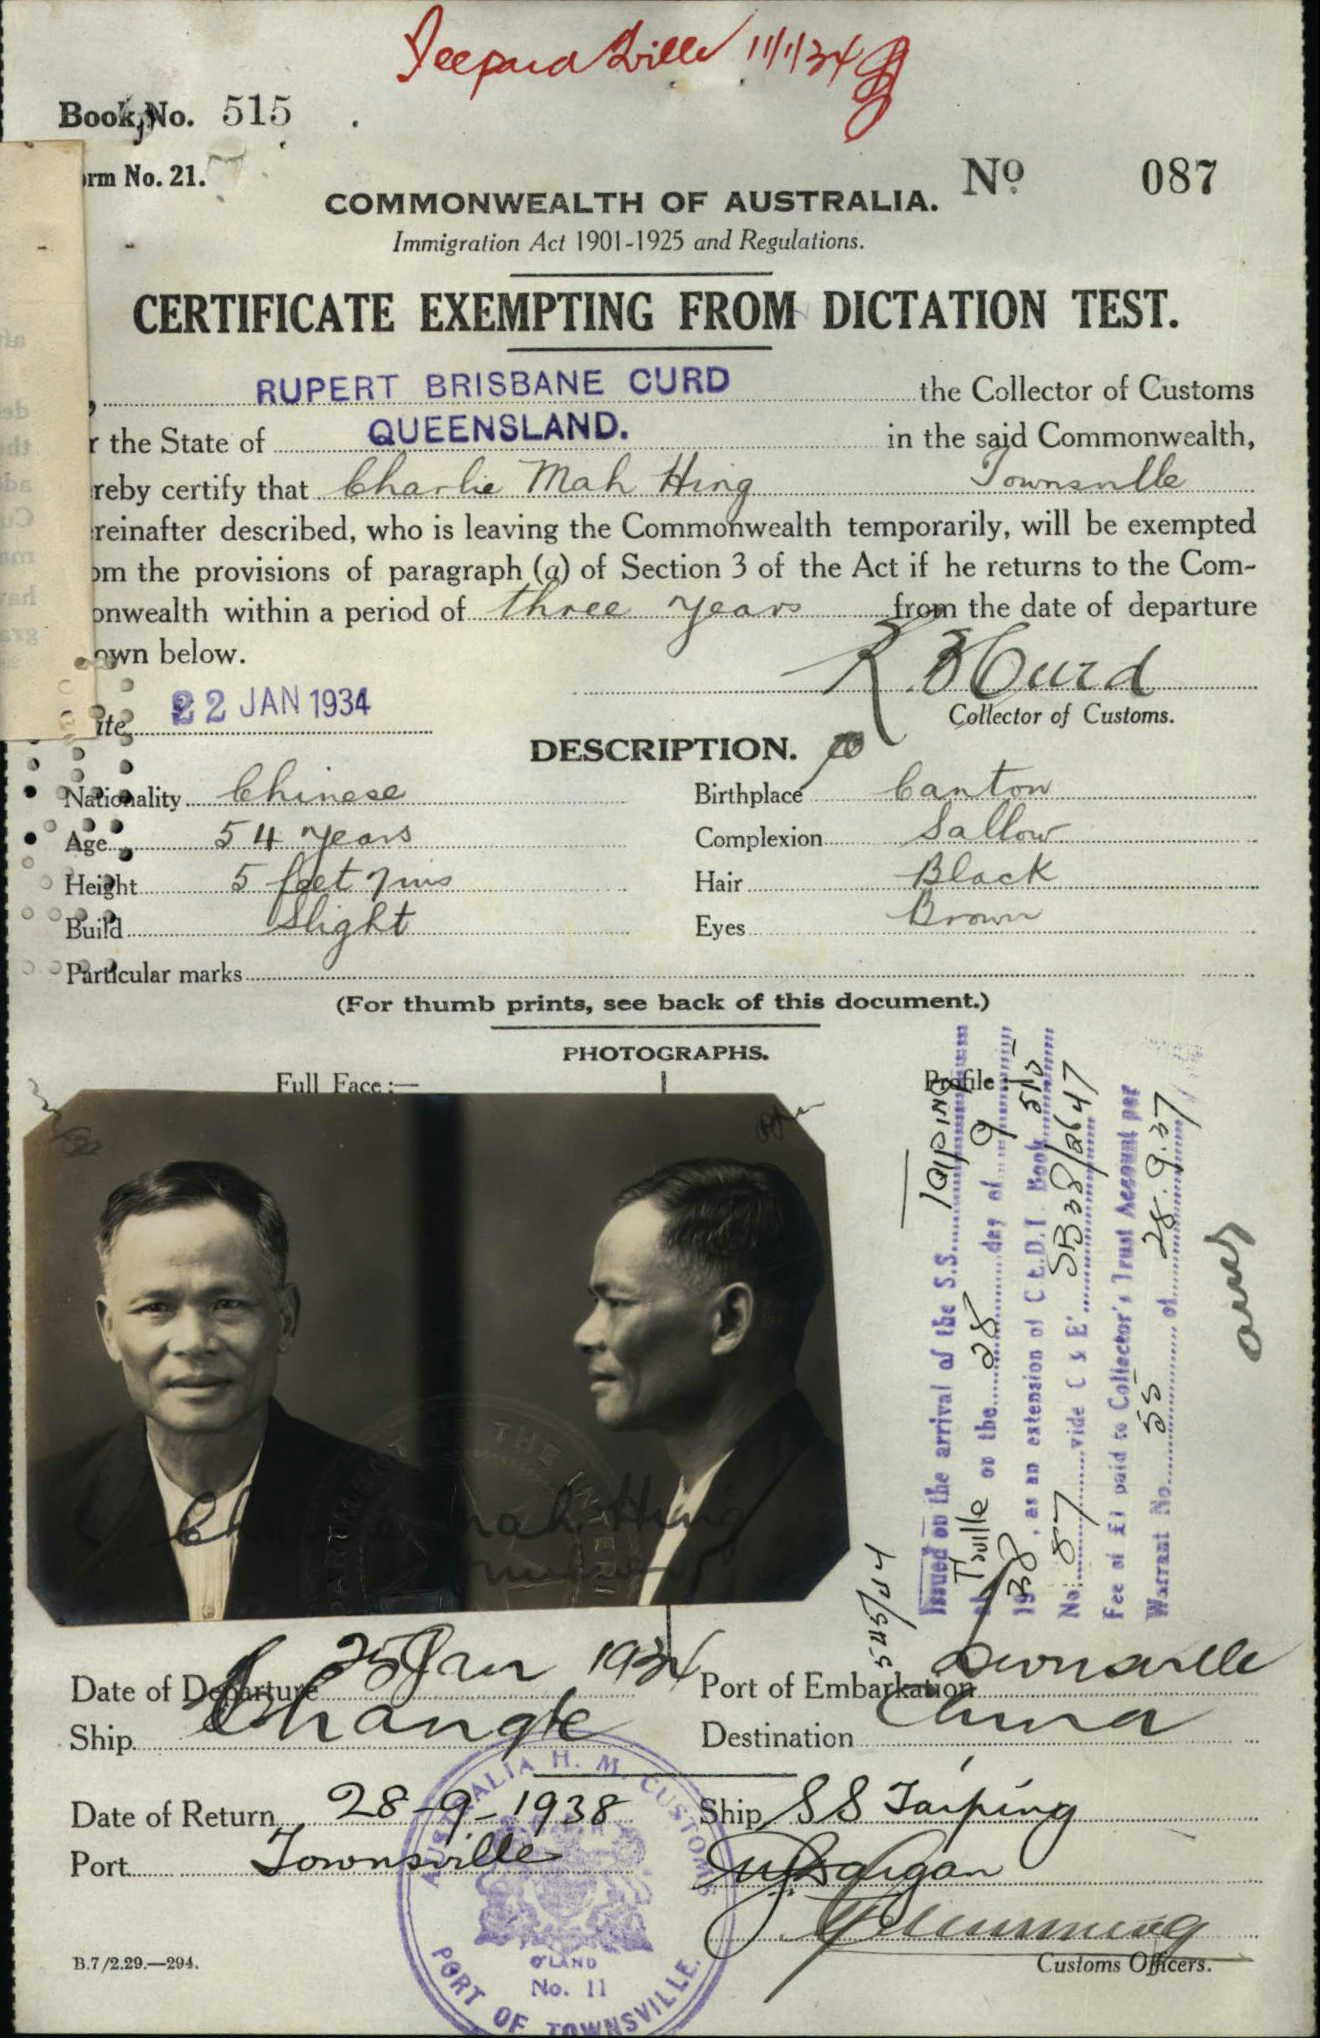 11/1/34
Book No. 515
orm No. 21.
No 087
COMMONWEALTH OF AUSTRALIA.
Immigration Act 1901-1925 and Regulations.
CERTIFICATE EXEMPTING FROM DICTATION TEST.
, RUPERT BRISBANE CURD the Collector of Customs
r the State of QUEENSLAND. in the said Commonwealth,
reby certify that Charlie Mah Hing Townsville
reinafter described, who is leaving the Commonwealth temporarily, will be exempted
om the provisions of paragraph (a) of Section 3 of the Act if he returns to the Com-
onwealth within a period of three years from the date of departure
own below.
R B Curd
Collector of Customs.
ate 22 JAN 1934
DESCRIPTION.
Nationality Chinese Birthplace Canton
Age 54 years Complexion Sallow
Height 5 feet 7 ins Hair Black
Build Slight Eyes Brown
Particular marks
(For thumb prints, see back of this document.)
PHOTOGRAPHS.
Full Face:— Profile
Issued on the arrival of the S.S. TAIPING
at T'ville on the 28 day of 9
1938, as an extension of C.E.D.T. Book 515
No. 87 vide C & E' SB38/2647
Fee of £1 paid to Collector's Trust Account per
Warrant No. 55 of 28.9.37
545/04
Mah Hing
Date of Departure 25 Jan 1934 Port of Embarkation Townsville
Ship Changte Destination China
Date of Return 28-9-1938 Ship SS Taiping
Port Townsville
Customs Officers.
B.7/2.29.—294.
AUSTRALIA H. M. CUSTOMS
Q'LAND
No. 11
PORT OF TOWNSVILLE.